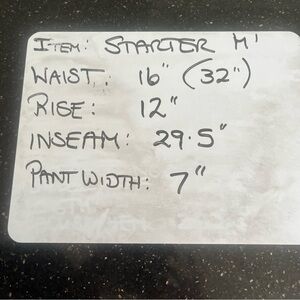 ITEM: STARTER M'
WAIST: 16" (32")
RISE: 12"
INSEAM: 29.5"
PANT WIDTH: 7"